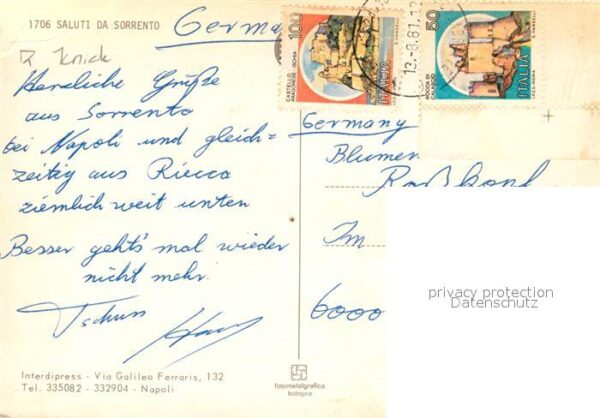 1706 SALUTI DA SORRENTO
Germa
Knick
Herzliche Grüße
aus Sorrento
bei Napoli und gleich=
zeitig aus Riecca
ziemlich weit unten
Besser geht's mal wieder
nicht mehr.
Tschuss
Interdipress - Via Galileo Ferraris, 132
Tel. 335082 - 332904 - Napoli
fotometalgrafica
bologna
100
CASTELLO
ARAGONESE - ISCHIA
ITALIA
13.-8.81.12
50
ROCCA DI
CALASCIO
ITALIA
Germany
Blumen
Roßkopf
Im
6000
privacy protection
Datenschutz